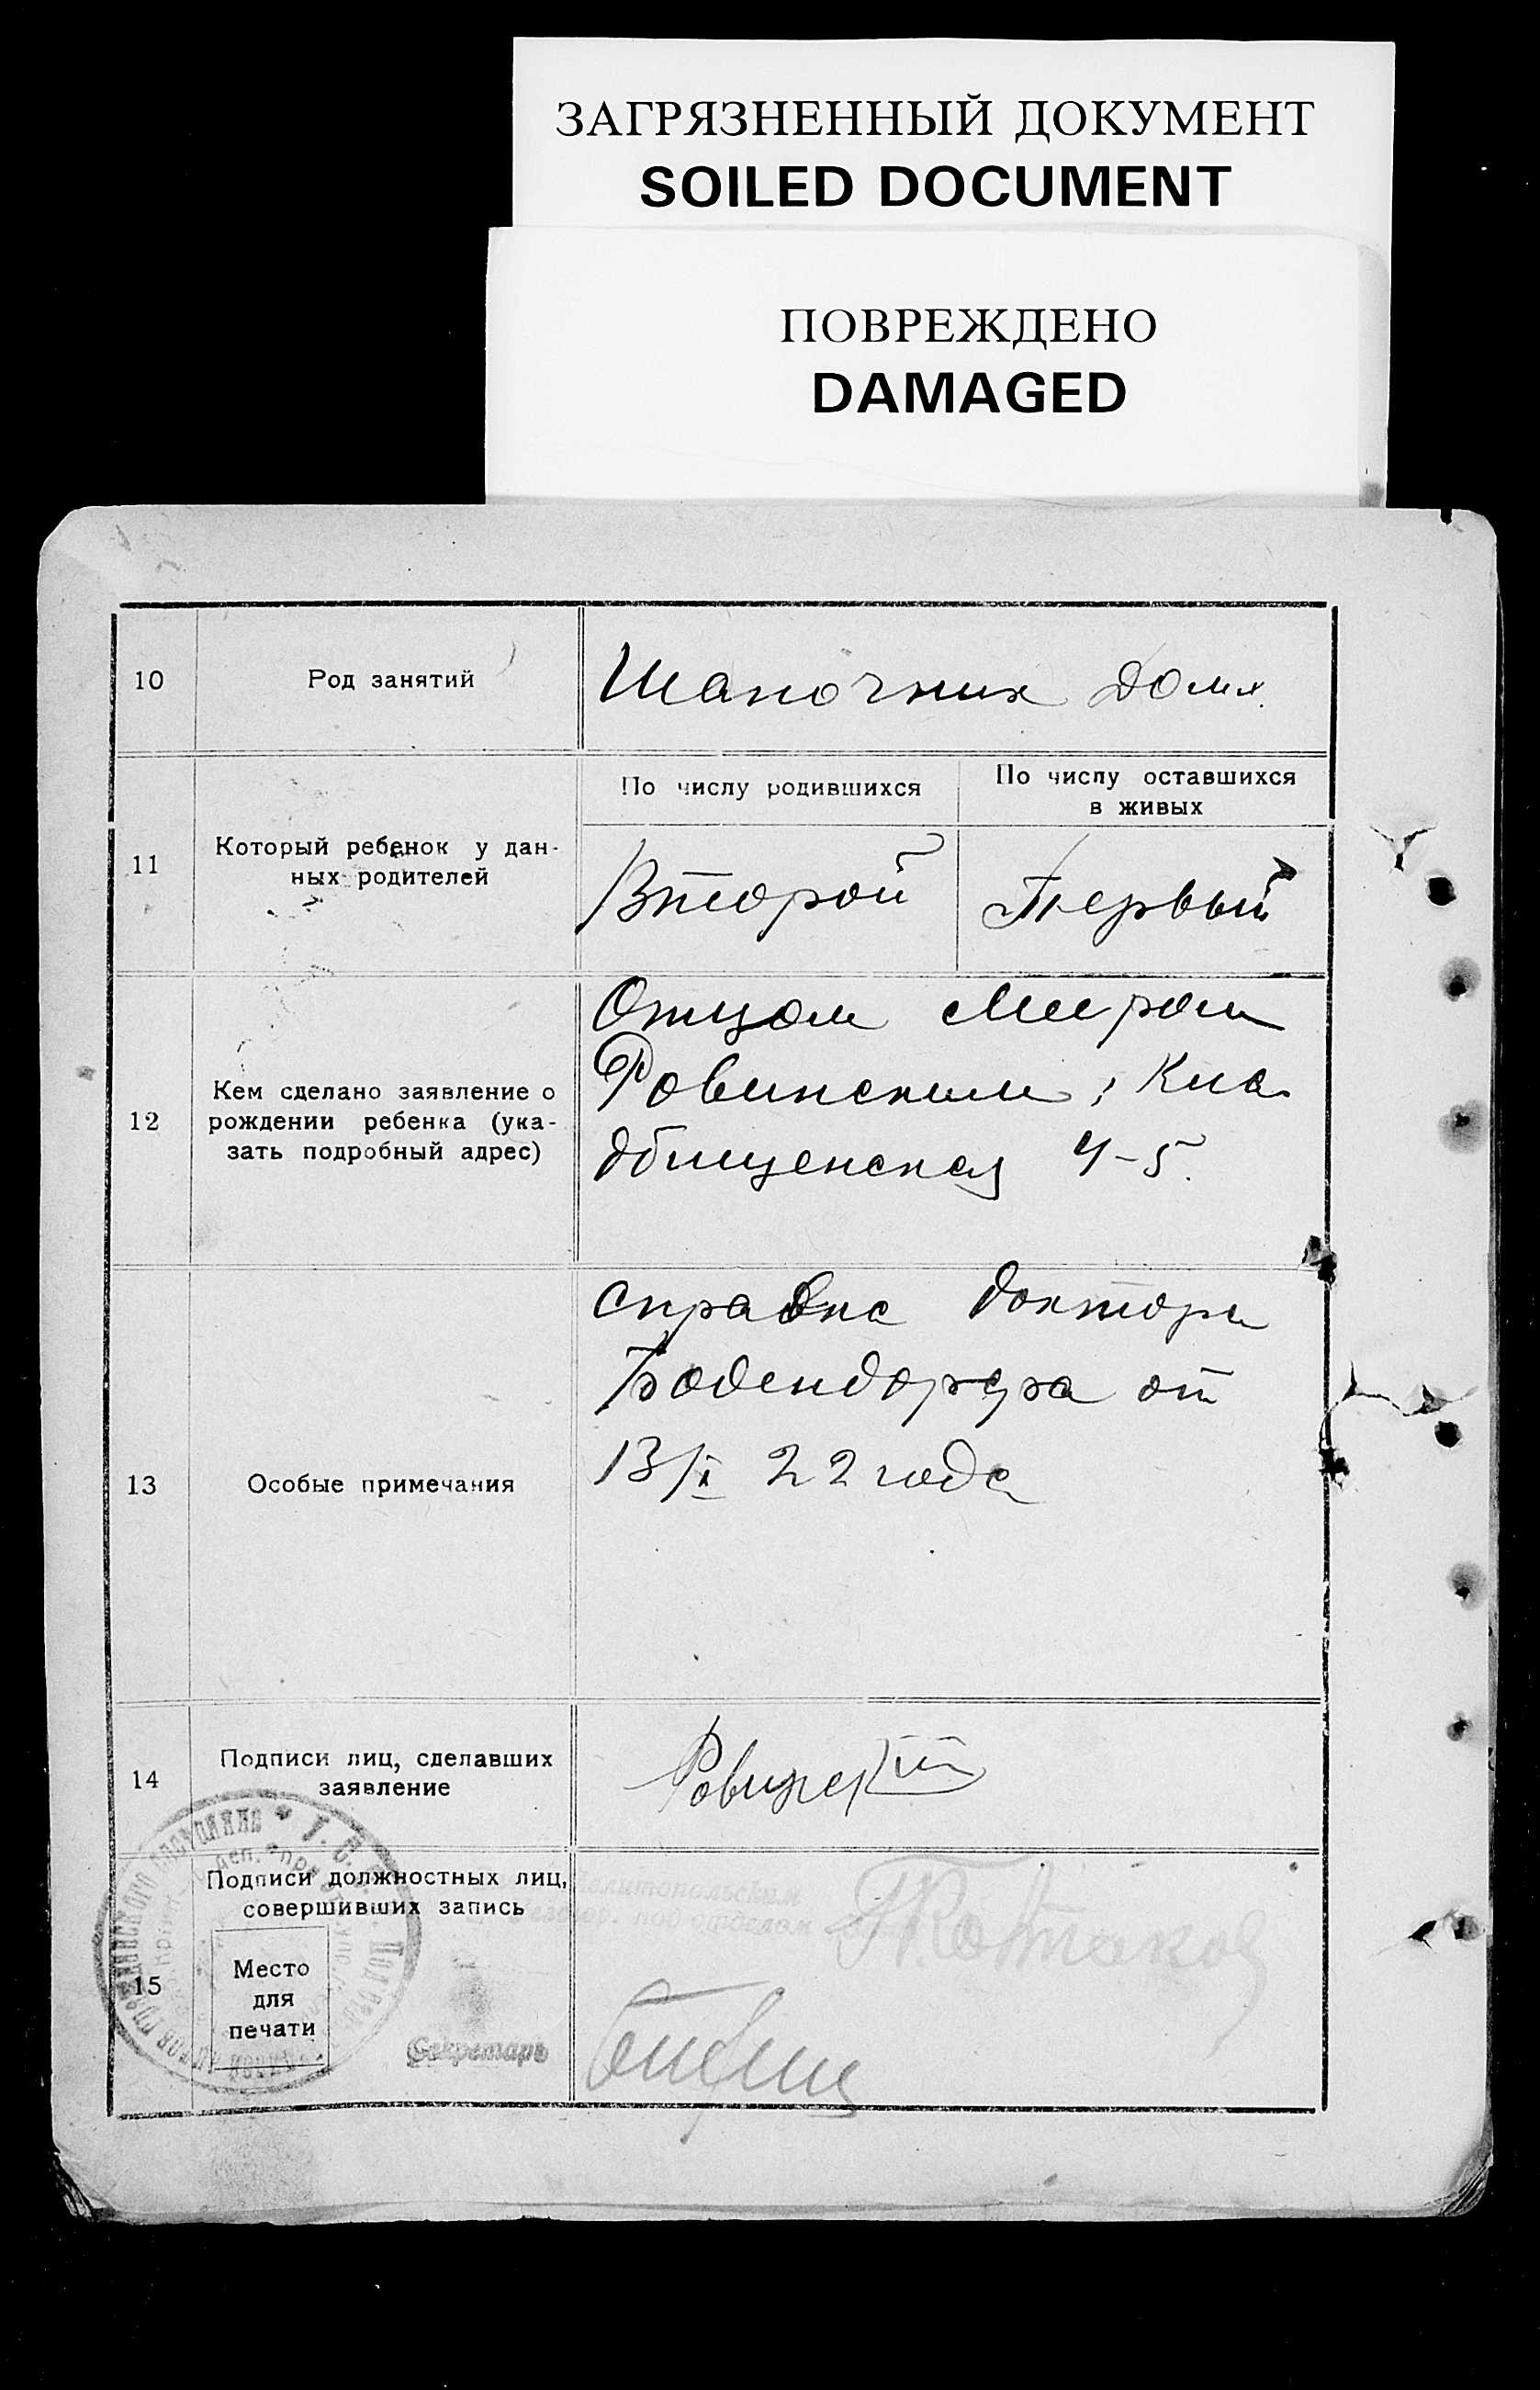 ЗАГРЯЗНЕННЫЙ ДОКУМЕНТ
SOILED DOCUMENT
ПОВРЕЖДЕНО
DAMAGED
10 Род занятий Шапочник Дом.
11 Который ребенок у дан-
ных родителей
По числу родившихся
Второй
По числу оставшихся
в живых
Первый
12 Кем сделано заявление о
рождении ребенка (ука-
зать подробный адрес)
Отцом Меером
Ровинским, Кла
дбищенская 4-5.
13 Особые примечания
Справка доктора
Бодендорфера от
13/X 22 года
14 Подписи лиц, сделавших
заявление
Ровинский
15 Подписи должностных лиц,
совершивших запись
Место
для
печати
Секретарь